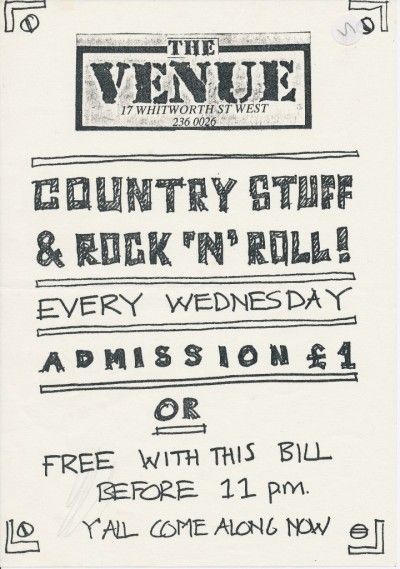 THE
VENUE
17 WHITWORTH ST WEST
236 0026
COUNTRY STUFF
& ROCK 'N' ROLL!
EVERY WEDNESDAY
ADMISSION £1
OR
FREE WITH THIS BILL
BEFORE 11 pm.
Y'ALL COME ALONG NOW